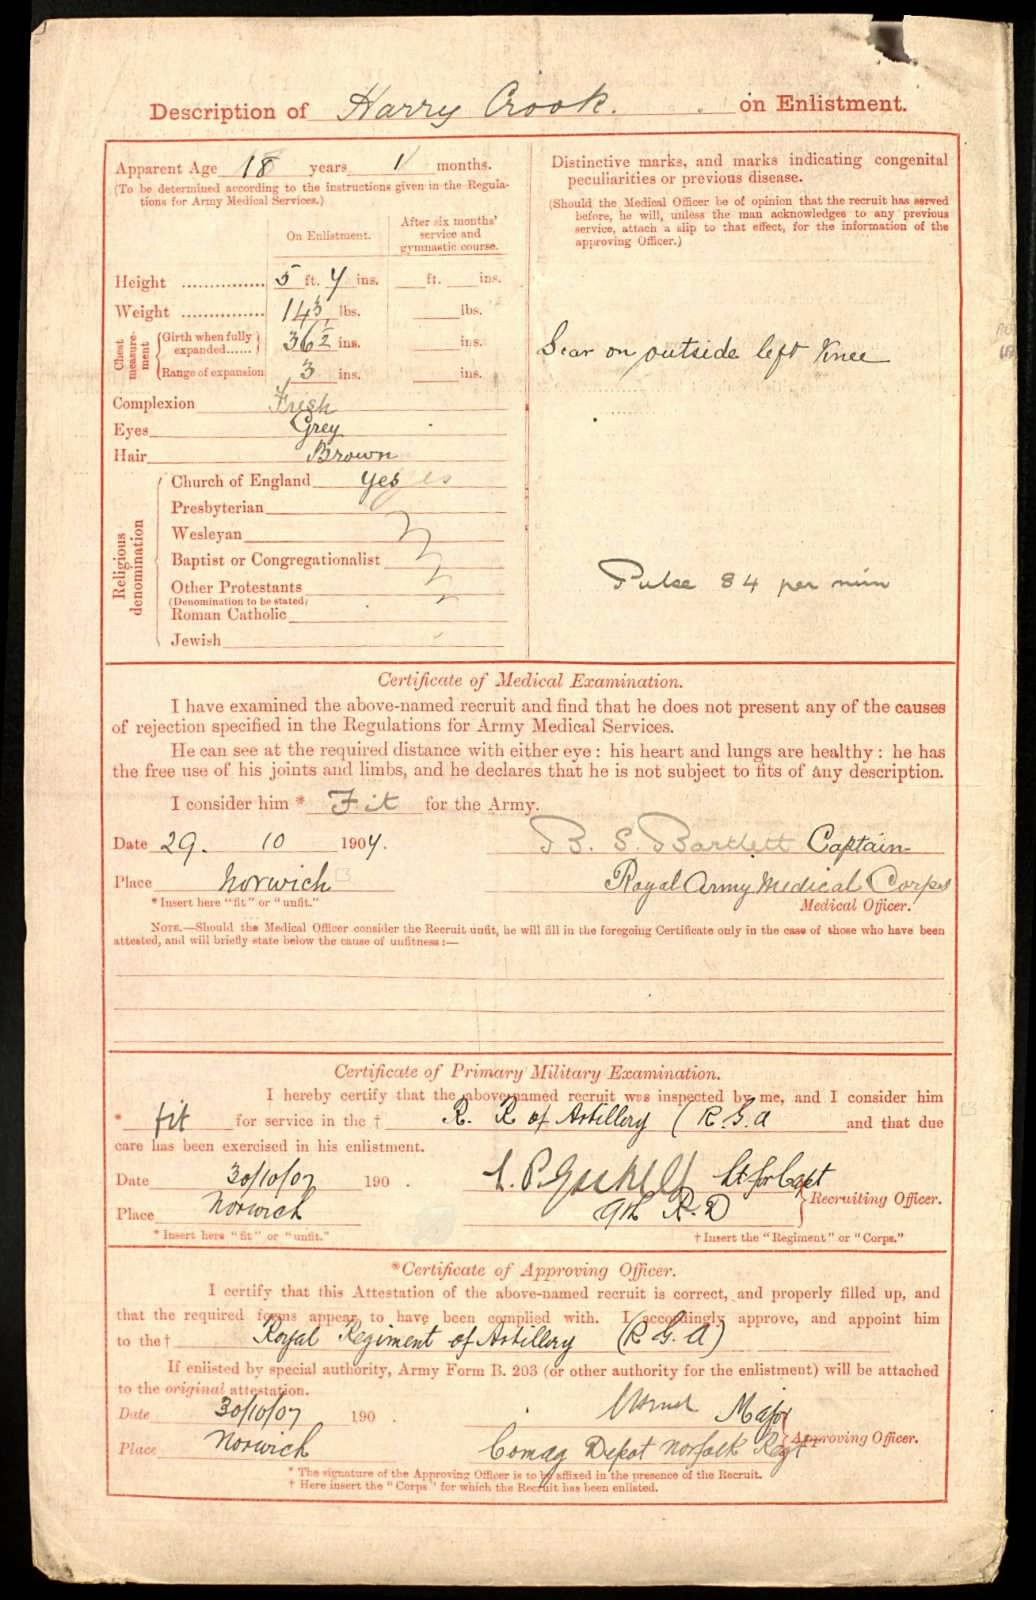 Description of Harry Crook. on Enlistment.
Apparent Age 18 years 1 months.
(To be determined according to the instructions given in the Regula-
tions for Army Medical Services.)
On Enlistment.
After six months'
service and
gymnastic course.
Height 5 ft. 7 ins. ft. ins.
Weight 143 lbs. lbs.
Chest measure-ment
Girth when fully expanded...... 36½ ins. ins.
Range of expansion 3 ins. ins.
Complexion Fresh
Eyes Grey
Hair Brown
Religious denomination
Church of England yes
Presbyterian
Wesleyan
Baptist or Congregationalist
Other Protestants
(Denomination to be stated)
Roman Catholic
Jewish
Distinctive marks, and marks indicating congenital
peculiarities or previous disease.
(Should the Medical Officer be of opinion that the recruit has served
before, he will, unless the man acknowledges to any previous
service, attach a slip to that effect, for the information of the
approving Officer.)
Scar on outside left Knee
Pulse 84 per min
Certificate of Medical Examination.
I have examined the above-named recruit and find that he does not present any of the causes
of rejection specified in the Regulations for Army Medical Services.
He can see at the required distance with either eye: his heart and lungs are healthy: he has
the free use of his joints and limbs, and he declares that he is not subject to fits of any description.
I consider him * Fit for the Army.
Date 29. 10 1907. B. S. Bartlett Captain
Place Norwich Royal Army Medical Corps
* Insert here "fit" or "unfit." Medical Officer.
NOTE.—Should the Medical Officer consider the Recruit unfit, he will fill in the foregoing Certificate only in the case of those who have been
attested, and will briefly state below the cause of unfitness:—
Certificate of Primary Military Examination.
I hereby certify that the above-named recruit was inspected by me, and I consider him
* fit for service in the † R. R of Artillery (R.G.A and that due
care has been exercised in his enlistment.
Date 30/10/07 190 . Lt for Capt
Recruiting Officer.
Place Norwich 9th R.D
* Insert here "fit" or "unfit." † Insert the "Regiment" or "Corps."
*Certificate of Approving Officer.
I certify that this Attestation of the above-named recruit is correct, and properly filled up, and
that the required forms appear to have been complied with. I accordingly approve, and appoint him
to the † Royal Regiment of Artillery (R.G.A)
If enlisted by special authority, Army Form B. 203 (or other authority for the enlistment) will be attached
to the original attestation.
Date 30/10/07 190 . Major
Approving Officer.
Place Norwich Comdg Depot Norfolk Regt
* The signature of the Approving Officer is to be affixed in the presence of the Recruit.
† Here insert the "Corps" for which the Recruit has been enlisted.